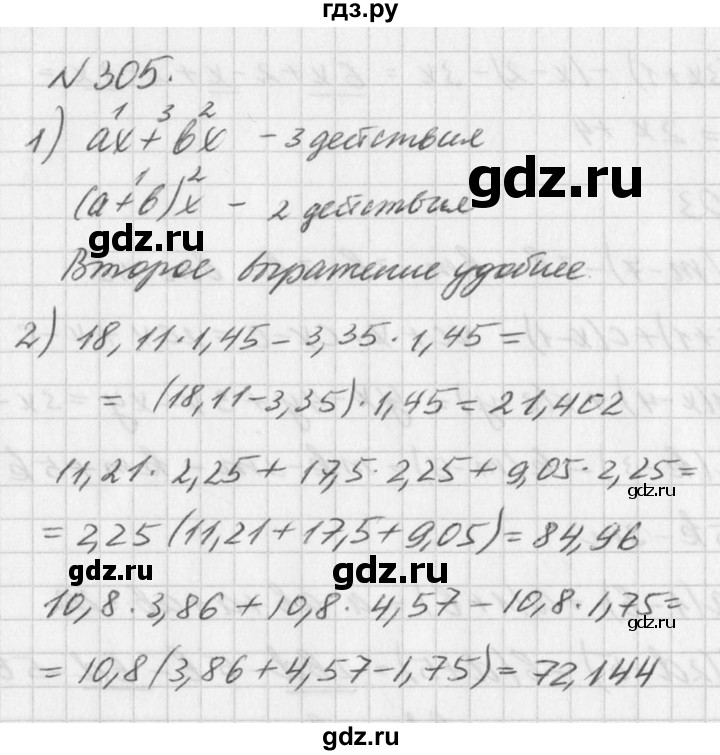 гдз.ру
№305.
1) ax + bx - 3 действия
1 3 2
(a+b)x - 2 действия
1 2
gdz.ru
gdz.ru
Второе выражение удобнее.
2) 18,11·1,45 - 3,35·1,45 =
= (18,11-3,35)·1,45 = 21,402
11,21·2,25 + 17,5·2,25 + 9,05·2,25 =
gdz.ru
= 2,25(11,21+17,5+9,05) = 84,96
gdz.ru
gdz.ru
10,8·3,86 + 10,8·4,57 - 10,8·1,75 =
gdz.ru
= 10,8(3,86+4,57-1,75) = 72,144
гдз.ру